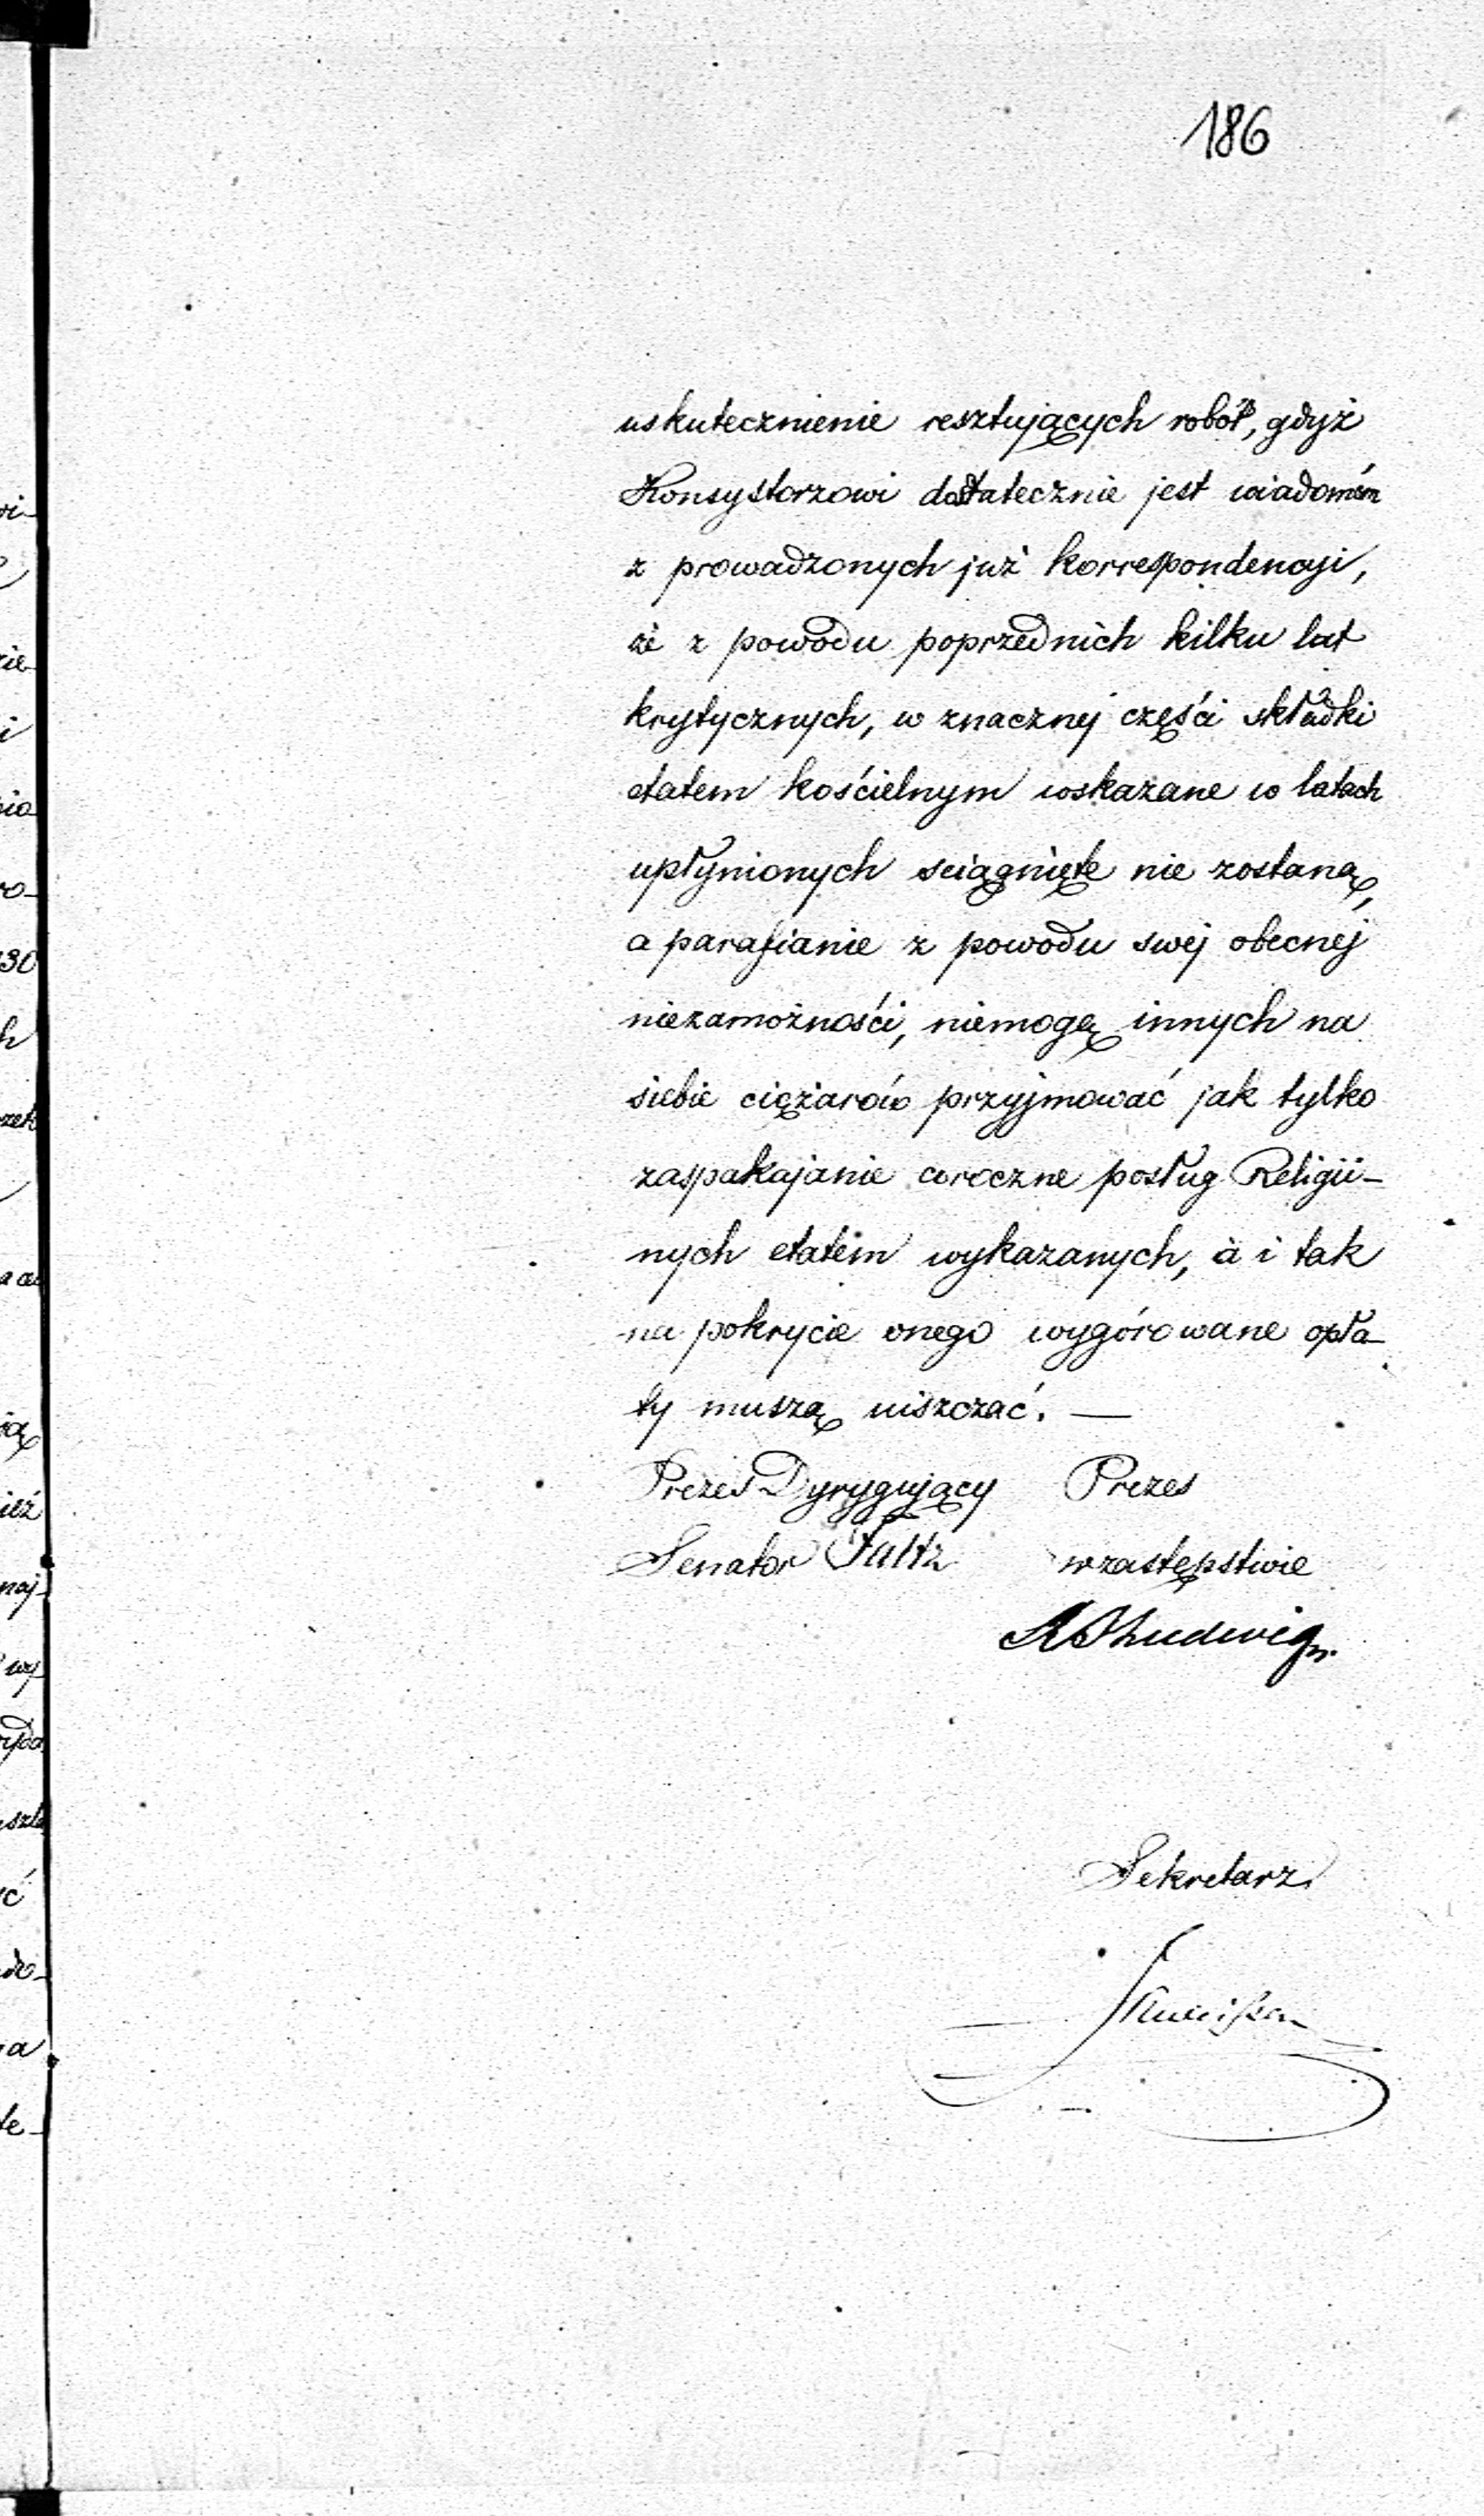 186
uskutecznienie resztujących robót, gdyż
Konsystorzowi dostatecznie jest wiadomém
z prowadzonych już korrespondencyi,
że z powodu poprzednich kilku lat
krytycznych, w znacznej części składki
etatem kościelnym wskazane w latach
upłynionych sciągnięte nie zostaną,
a parafianie z powodu swej obecnej
niezamożności, niemogą innych na
siebie ciężarów przyjmować jak tylko
zaspakajanie coroczne posług Religii-
nych etatem wykazanych, a i tak
na pokrycie onego wygórowane opła-
ty muszą uiszczać. —
Prezes Dyrygujący Prezes
Senator w zastępstwie
Ludwig
Sekretarz